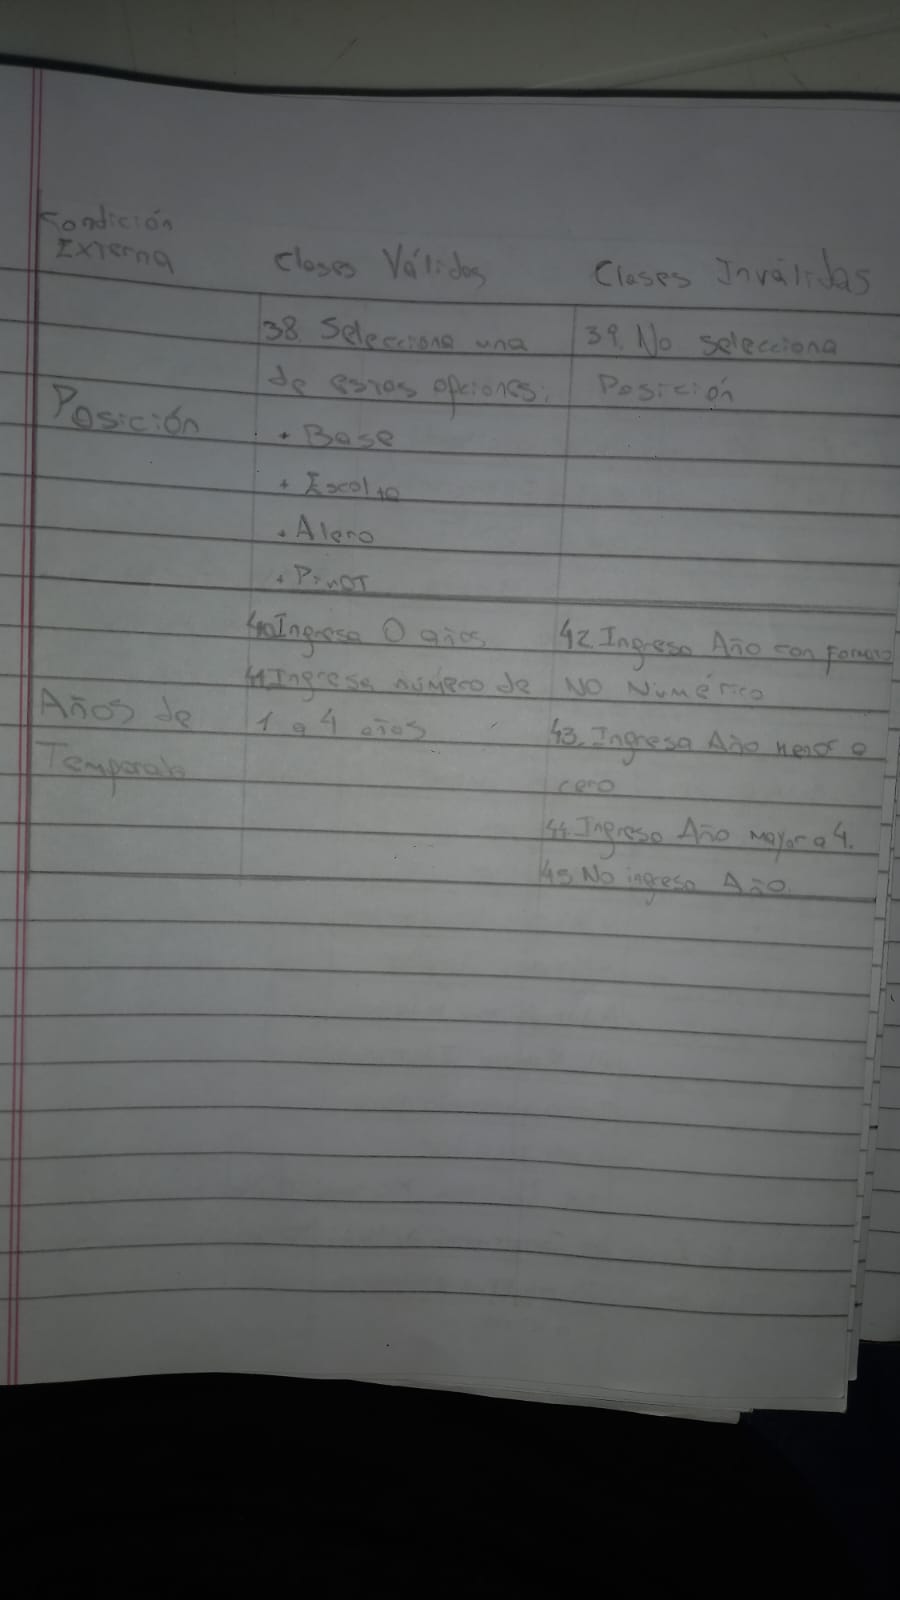 Condición
Externa
Clases Válidas
Clases Inválidas
Posición
38. Selecciona una
de estas opciones:
• Base
• Escolta
• Alero
• Pivot
39. No selecciona
Posición
Años de
Temporada
40. Ingresa 0 años
41. Ingresa número de
1 a 4 años
42. Ingresa Año con Formato
NO Numérico
43. Ingresa Año menor a
cero
44. Ingresa Año Mayor a 4.
45. No ingresa Año.